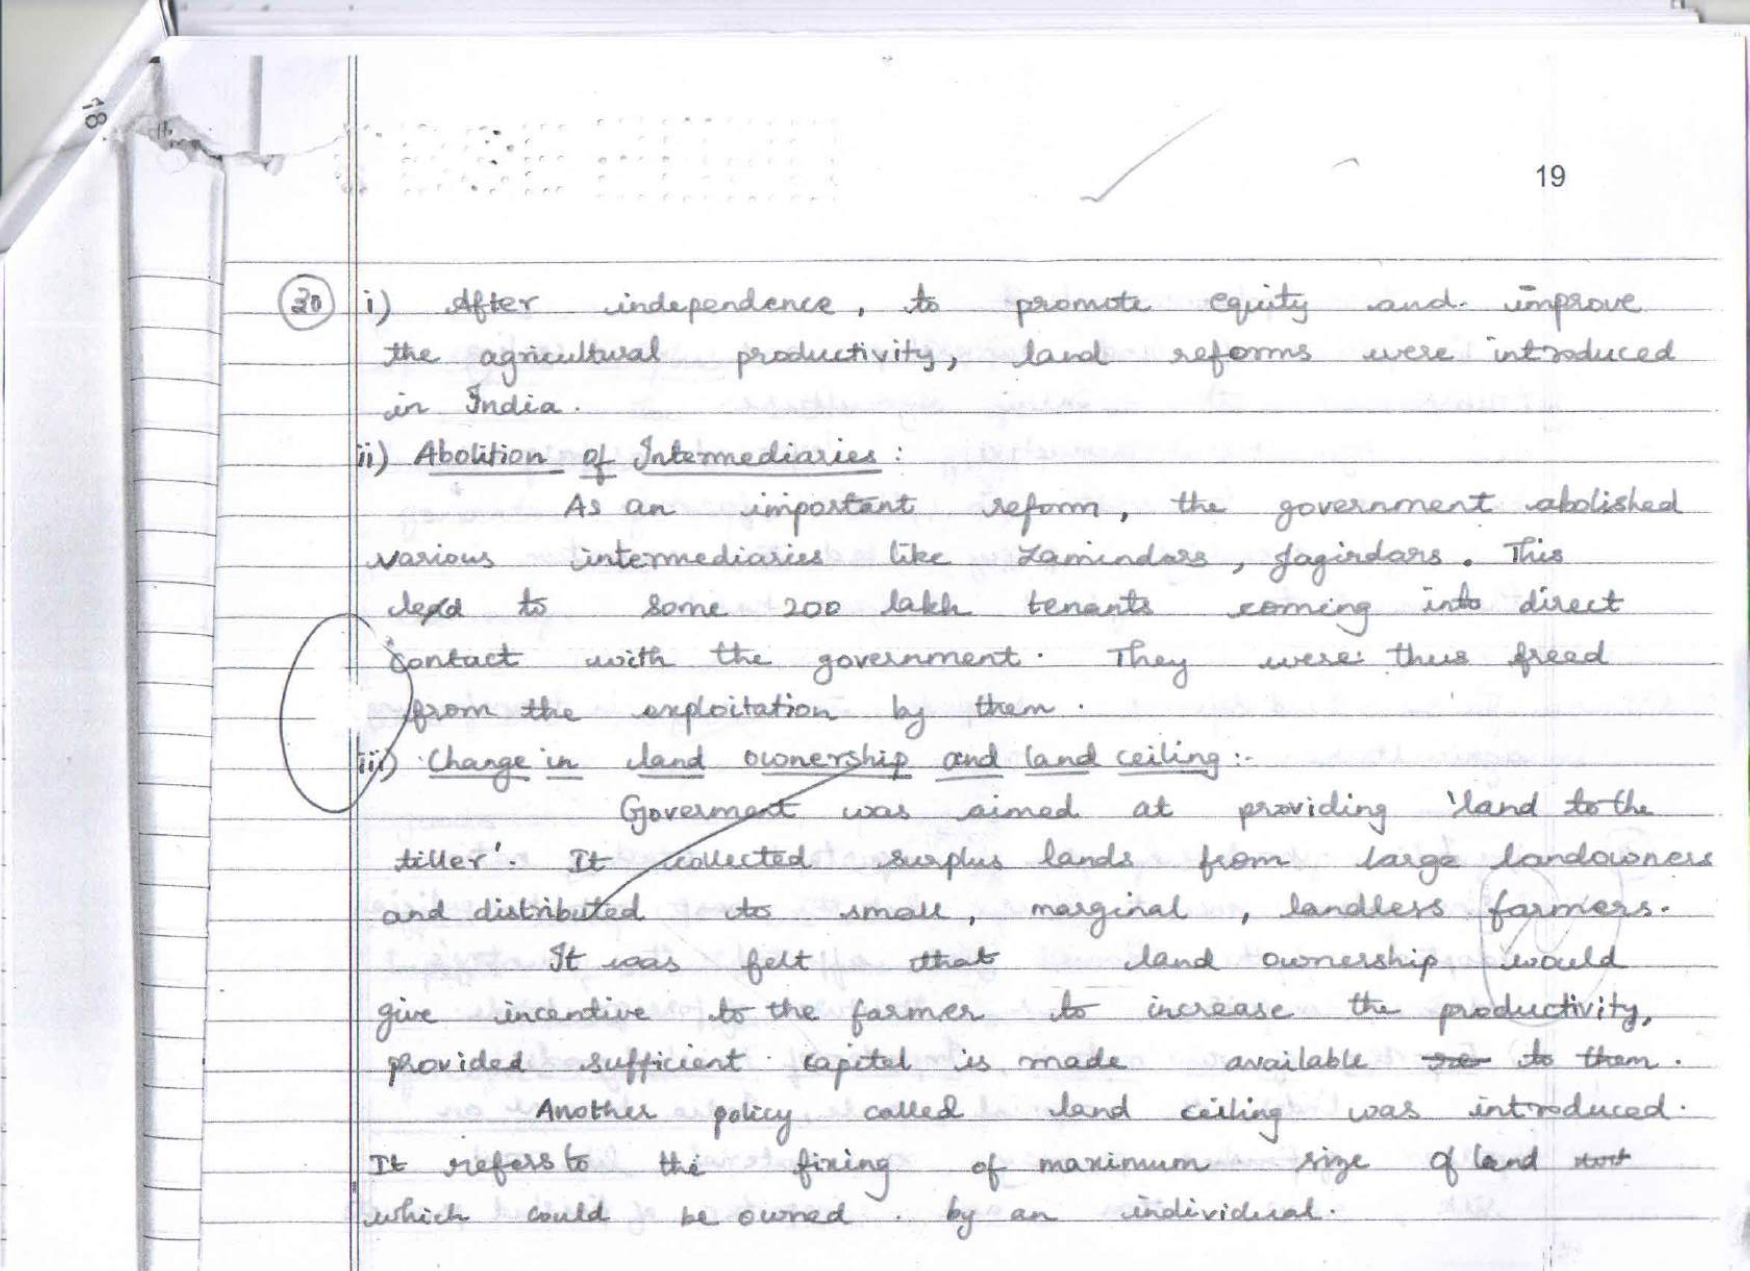 18
19
30 i) After independence, to promote equity and improve
the agricultural productivity, land reforms were introduced
in India.
ii) Abolition of Intermediaries :
As an important reform, the government abolished
various intermediaries like Zamindars, Jagirdars. This
led to some 200 lakh tenants coming into direct
contact with the government. They were thus freed
from the exploitation by them.
iii) Change in land ownership and land ceiling :-
Goverment was aimed at providing 'land to the
tiller'. It collected surplus lands from large landowners
and distributed to small, marginal, landless farmers.
It was felt that land ownership would
give incentive to the farmer to increase the productivity,
provided sufficient capital is made available to them.
Another policy called land ceiling was introduced.
It refers to the fixing of maximum size of land
which could be owned by an individual.